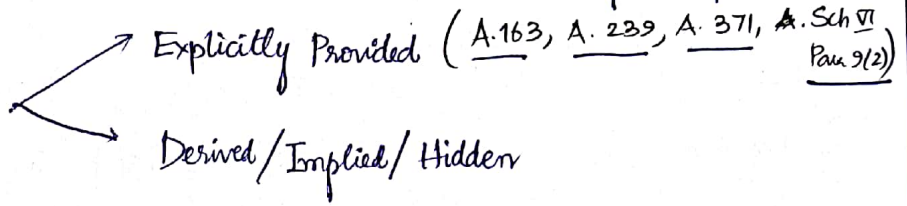 Explicitly Provided (A.163, A. 239, A. 371, A. Sch VI
Para 9(2))
Derived/Implied/Hidden